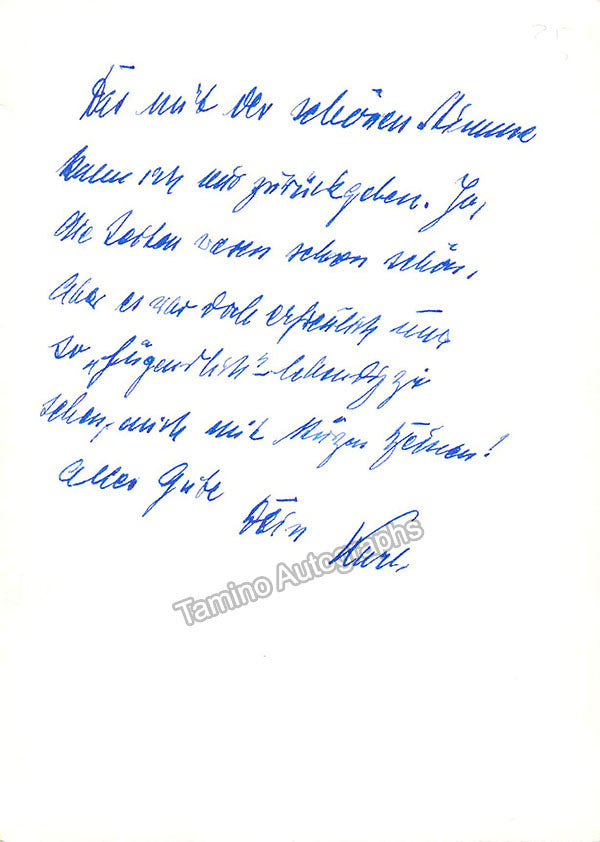 Das mit der schönen Stimme
kann ich nur zurückgeben. Ja,
die Zeiten waren schon schön,
aber es war doch erfreulich uns
so „jugendlich“-lebendig zu
sehen, mich mit kurzen Beinen!
Alles Gute
Dein Kurt.
Tamino Autographs